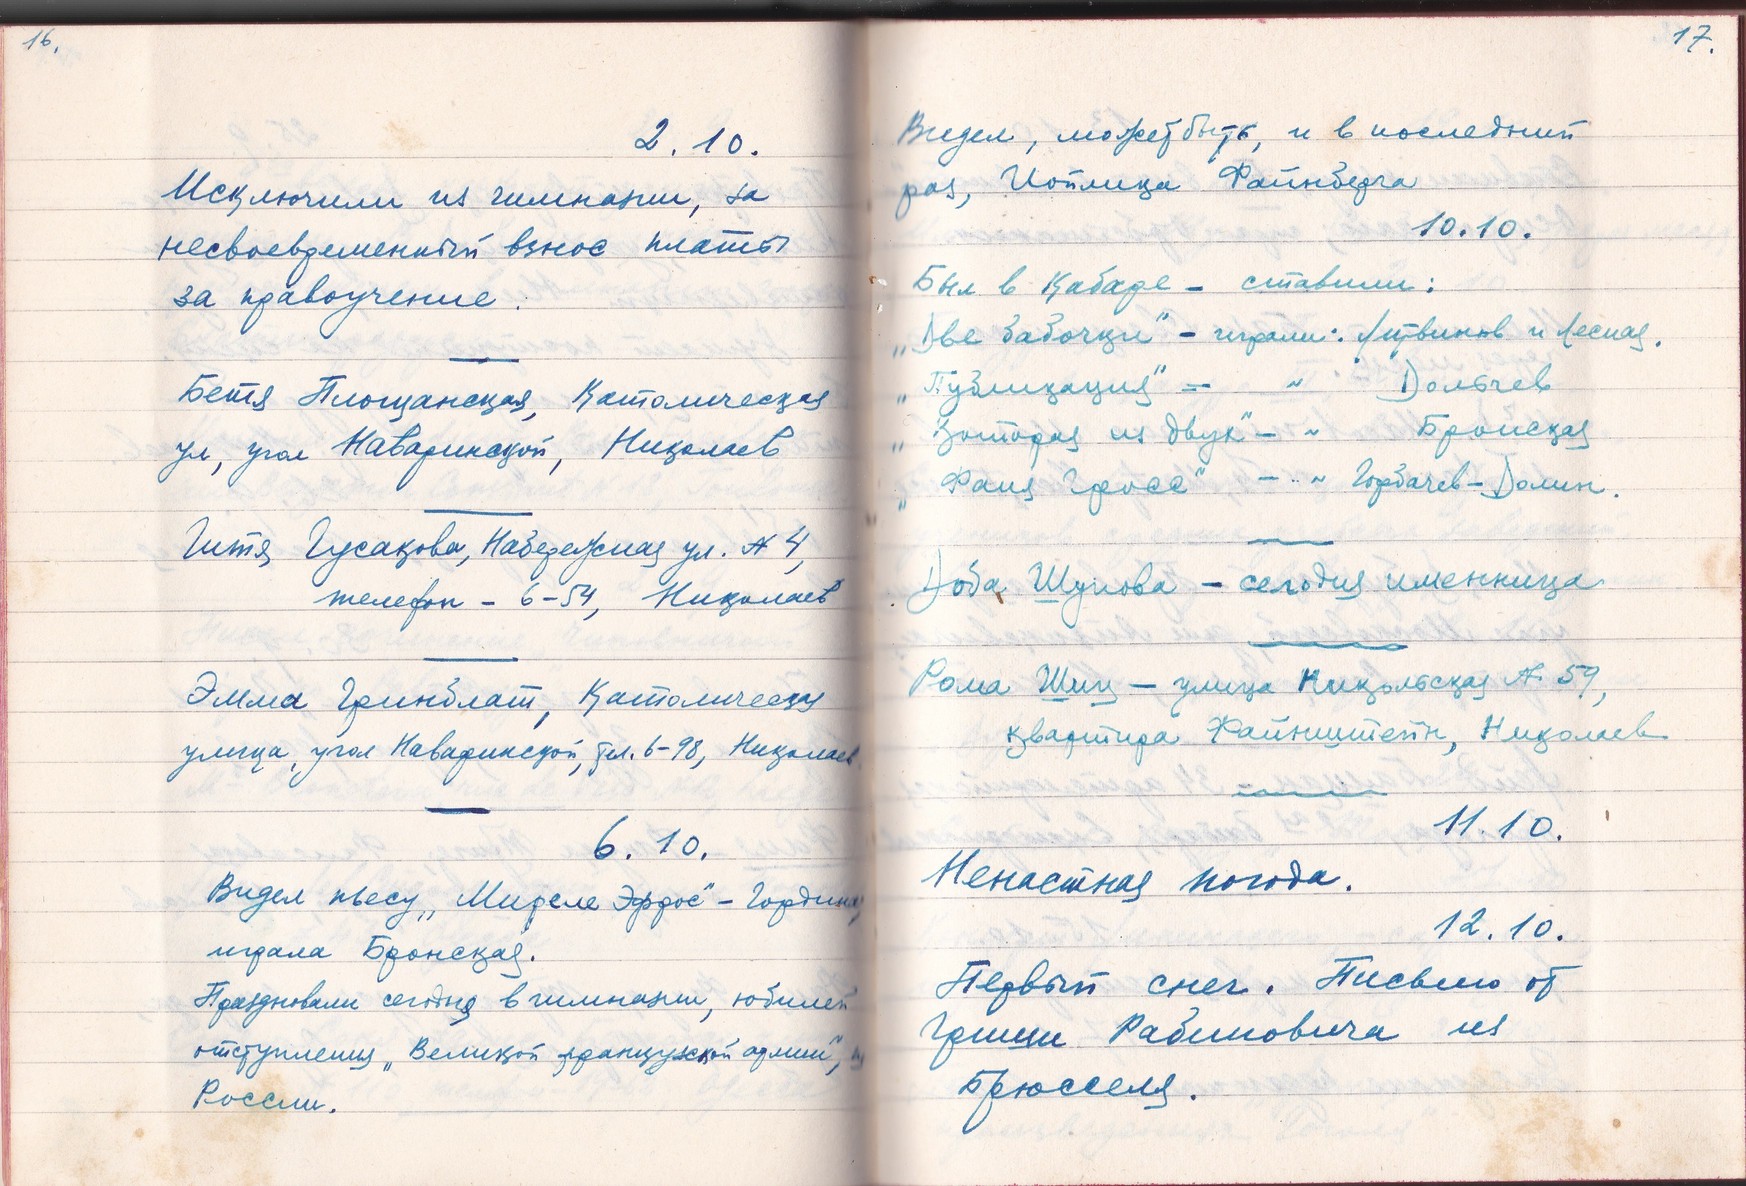 16.
2.10.
Исключили из гимназии, за
несвоевременный взнос платы
за правоучение.
Бетя Площанская, Католическая
ул, угол Наваринской, Николаев
Гитя Гусакова, Набережная ул. № 4,
телефон – 6–54, Николаев
Эмма Гринблат, Католическая
улица, угол Наваринской, тел. 6–98, Николаев
6.10.
Видел пьесу „Миреле Эфрос" – Гордина,
играла Бронская.
Праздновали сегодня в гимназии, юбилей
отступления „Великой французской армии", из
России.
17.
Видел, может быть, и в последний
раз, Иоплица Файнберга
10.10.
Был в Кабаре – ставили:
„Две бабочки" – играли: Литвинов и Лесная.
„Публикация" – " Долбчев
„Которая из двух" – " Бронская
„Фаня Гросс" – " Горбачев–Долин.
Доба Шупова – сегодня именница
Рома Шиц – улица Никольская № 59,
квартира Файнштейн, Николаев
11.10.
Ненастная погода.
12.10.
Первый снег. Письмо от
Гриши Рабиновича из
Брюсселя.